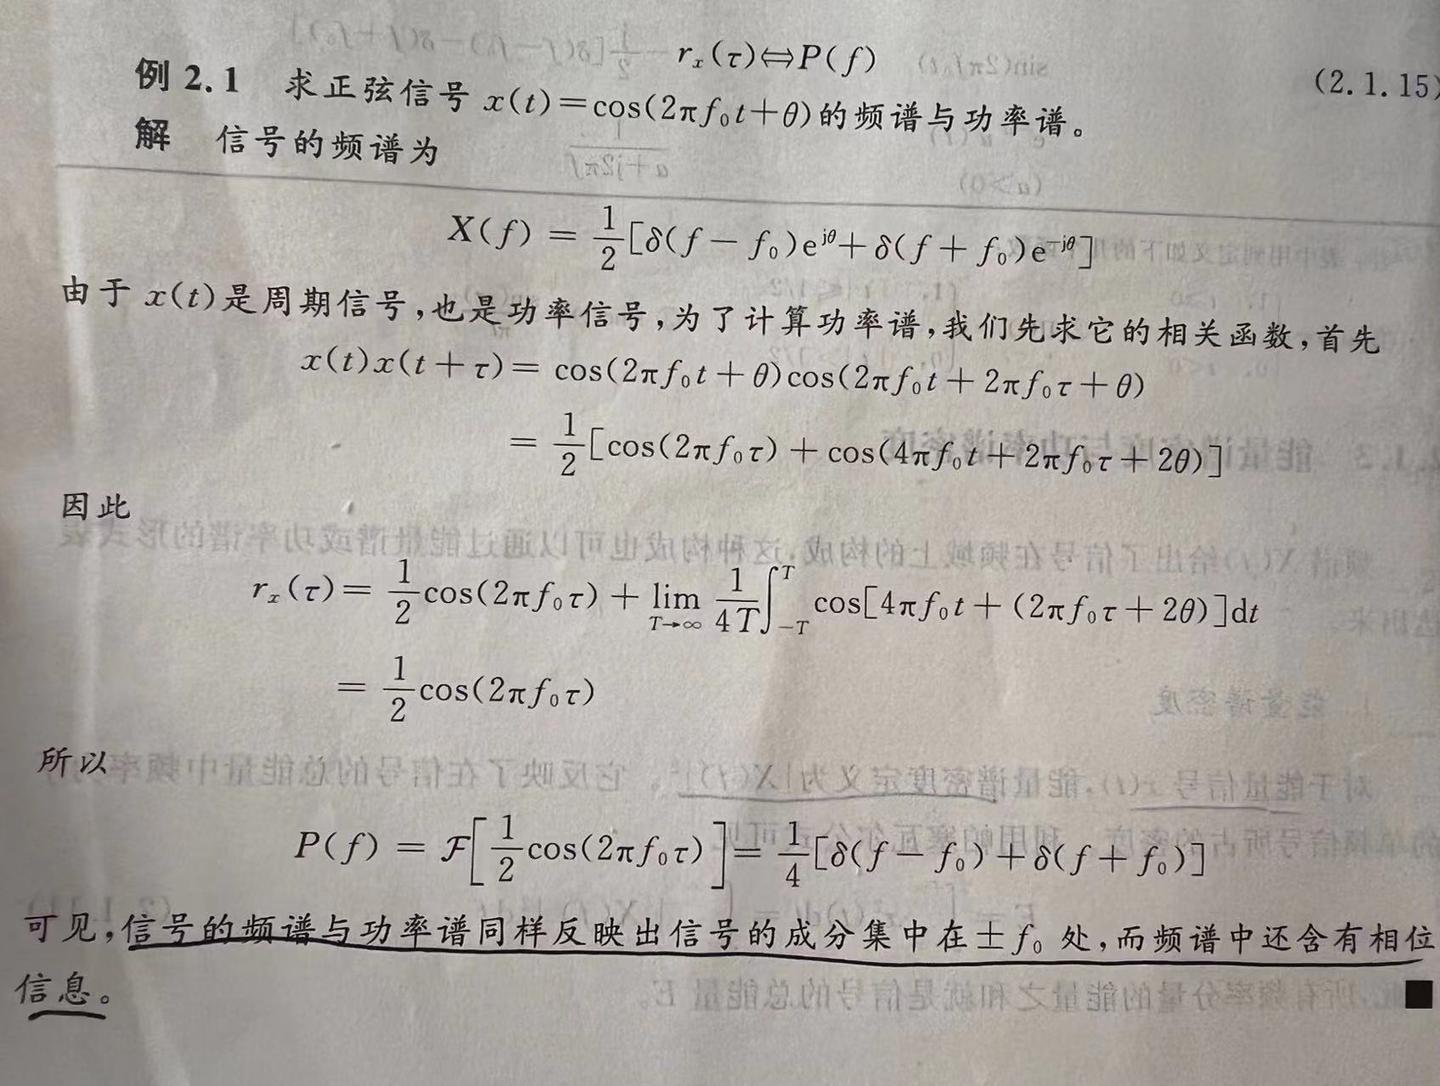 r_x(τ)⇔P(f) (2.1.15)
例 2.1 求正弦信号 x(t)=cos(2πf₀t+θ)的频谱与功率谱。
解 信号的频谱为
X(f) = 1/2[δ(f−f₀)e^{jθ}+δ(f+f₀)e^{−jθ}]
由于 x(t)是周期信号,也是功率信号,为了计算功率谱,我们先求它的相关函数,首先
x(t)x(t+τ)= cos(2πf₀t+θ)cos(2πf₀t+2πf₀τ+θ)
= 1/2[cos(2πf₀τ)+cos(4πf₀t+2πf₀τ+2θ)]
因此
r_x(τ)= 1/2 cos(2πf₀τ)+lim_{T→∞} 1/4T ∫_{−T}^{T} cos[4πf₀t+(2πf₀τ+2θ)]dt
= 1/2 cos(2πf₀τ)
所以
P(f) = ℱ[1/2 cos(2πf₀τ)]= 1/4[δ(f−f₀)+δ(f+f₀)]
可见,信号的频谱与功率谱同样反映出信号的成分集中在±f₀ 处,而频谱中还含有相位
信息。 ■